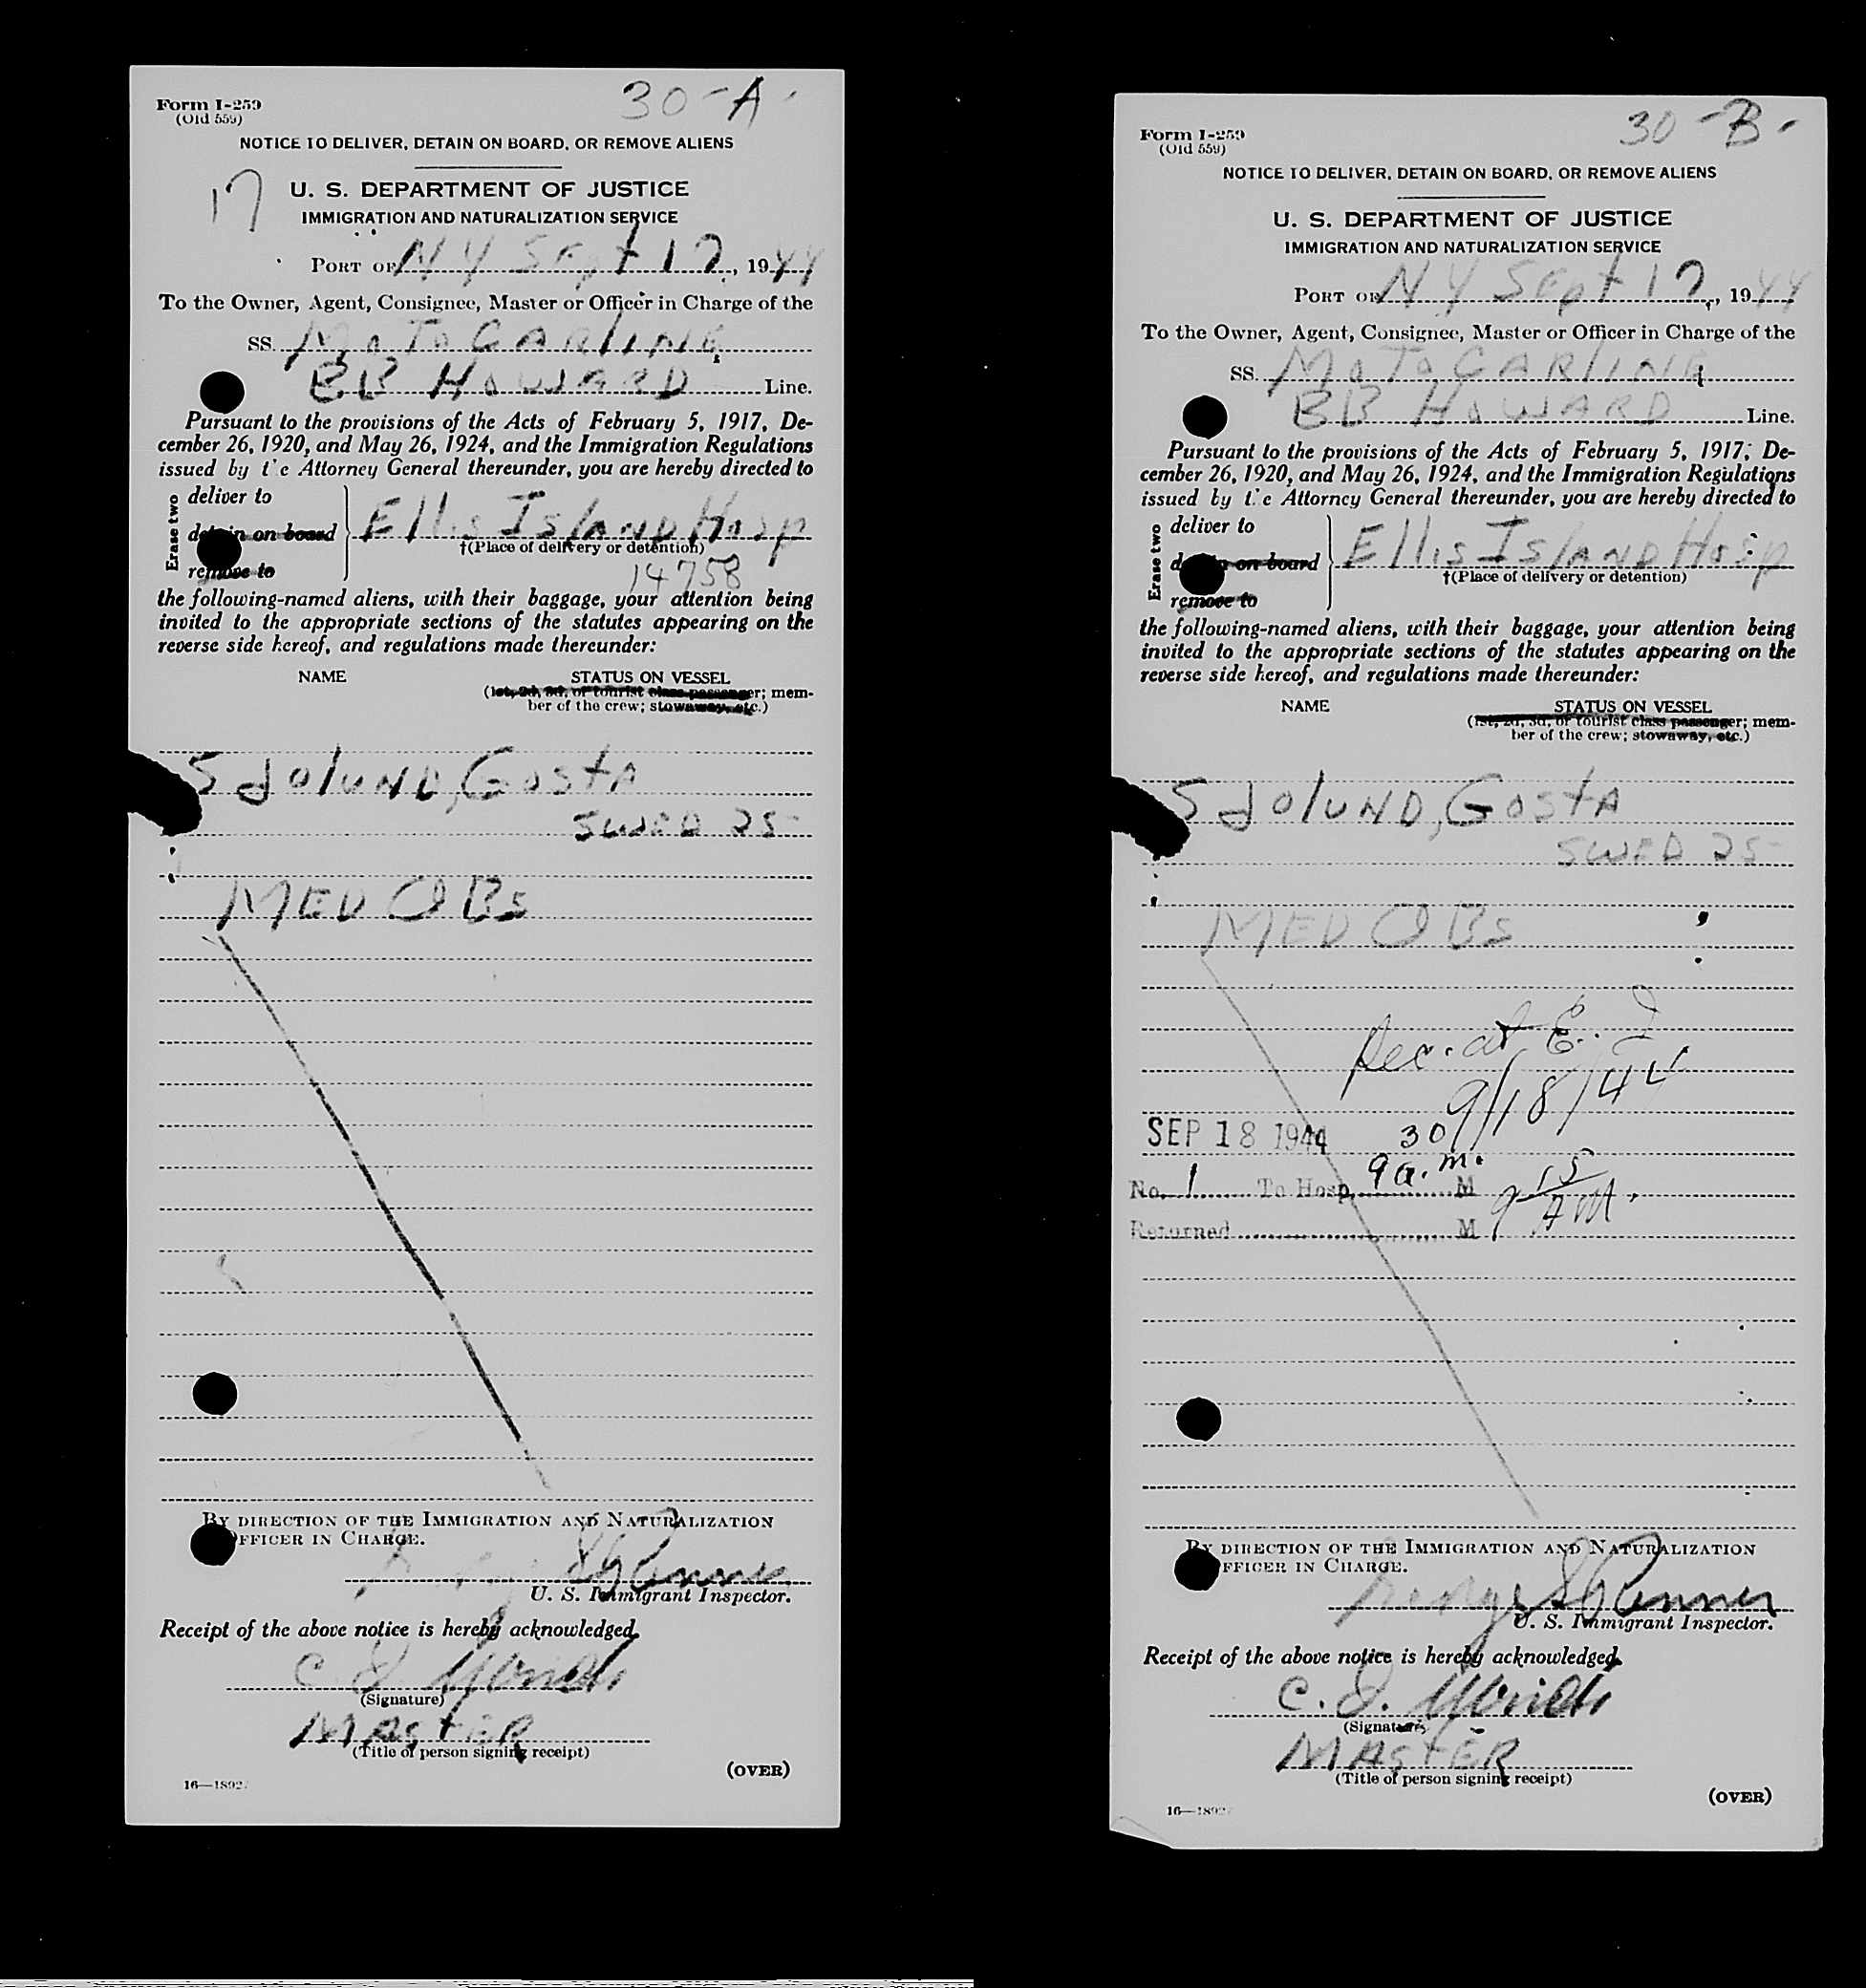 30-A-
Form I-259
(Old 559)
NOTICE TO DELIVER, DETAIN ON BOARD, OR REMOVE ALIENS
17
U. S. DEPARTMENT OF JUSTICE
IMMIGRATION AND NATURALIZATION SERVICE
PORT OF N Y Sept 17, 1944
To the Owner, Agent, Consignee, Master or Officer in Charge of the
SS. MOTOCARLINE
BB HOWARD Line.
Pursuant to the provisions of the Acts of February 5, 1917, De-
cember 26, 1920, and May 26, 1924, and the Immigration Regulations
issued by the Attorney General thereunder, you are hereby directed to
Erase two
deliver to
detain on board
remove to
Ellis Island Hosp
†(Place of delivery or detention)
14758
the following-named aliens, with their baggage, your attention being
invited to the appropriate sections of the statutes appearing on the
reverse side hereof, and regulations made thereunder:
NAME STATUS ON VESSEL
(1st, 2d, 3d, or tourist class passenger; mem-
ber of the crew; stowaway, etc.)
SJOLUND, GOSTA
SWED 25-
MED OBS
BY DIRECTION OF THE IMMIGRATION AND NATURALIZATION
OFFICER IN CHARGE.
U. S. Immigrant Inspector.
Receipt of the above notice is hereby acknowledged.
(Signature)
MASTER
(Title of person signing receipt)
(OVER)
16—1892
30-B-
Form I-259
(Old 559)
NOTICE TO DELIVER, DETAIN ON BOARD, OR REMOVE ALIENS
U. S. DEPARTMENT OF JUSTICE
IMMIGRATION AND NATURALIZATION SERVICE
PORT OF N Y Sept 17, 1944
To the Owner, Agent, Consignee, Master or Officer in Charge of the
SS. MOTOCARLINE
BB HOWARD Line.
Pursuant to the provisions of the Acts of February 5, 1917, De-
cember 26, 1920, and May 26, 1924, and the Immigration Regulations
issued by the Attorney General thereunder, you are hereby directed to
Erase two
deliver to
detain on board
remove to
Ellis Island Hosp
†(Place of delivery or detention)
the following-named aliens, with their baggage, your attention being
invited to the appropriate sections of the statutes appearing on the
reverse side hereof, and regulations made thereunder:
NAME STATUS ON VESSEL
(1st, 2d, 3d, or tourist class passenger; mem-
ber of the crew; stowaway, etc.)
SJOLUND, GOSTA
SWED 25-
MED OBS
Rec. at E. I
9/18/44
SEP 18 1944 30
No. 1 To Hosp. 9 a.m. M 9 15 AM.
Returned M
BY DIRECTION OF THE IMMIGRATION AND NATURALIZATION
OFFICER IN CHARGE.
George
U. S. Immigrant Inspector.
Receipt of the above notice is hereby acknowledged.
(Signature)
MASTER
(Title of person signing receipt)
(OVER)
16—1892